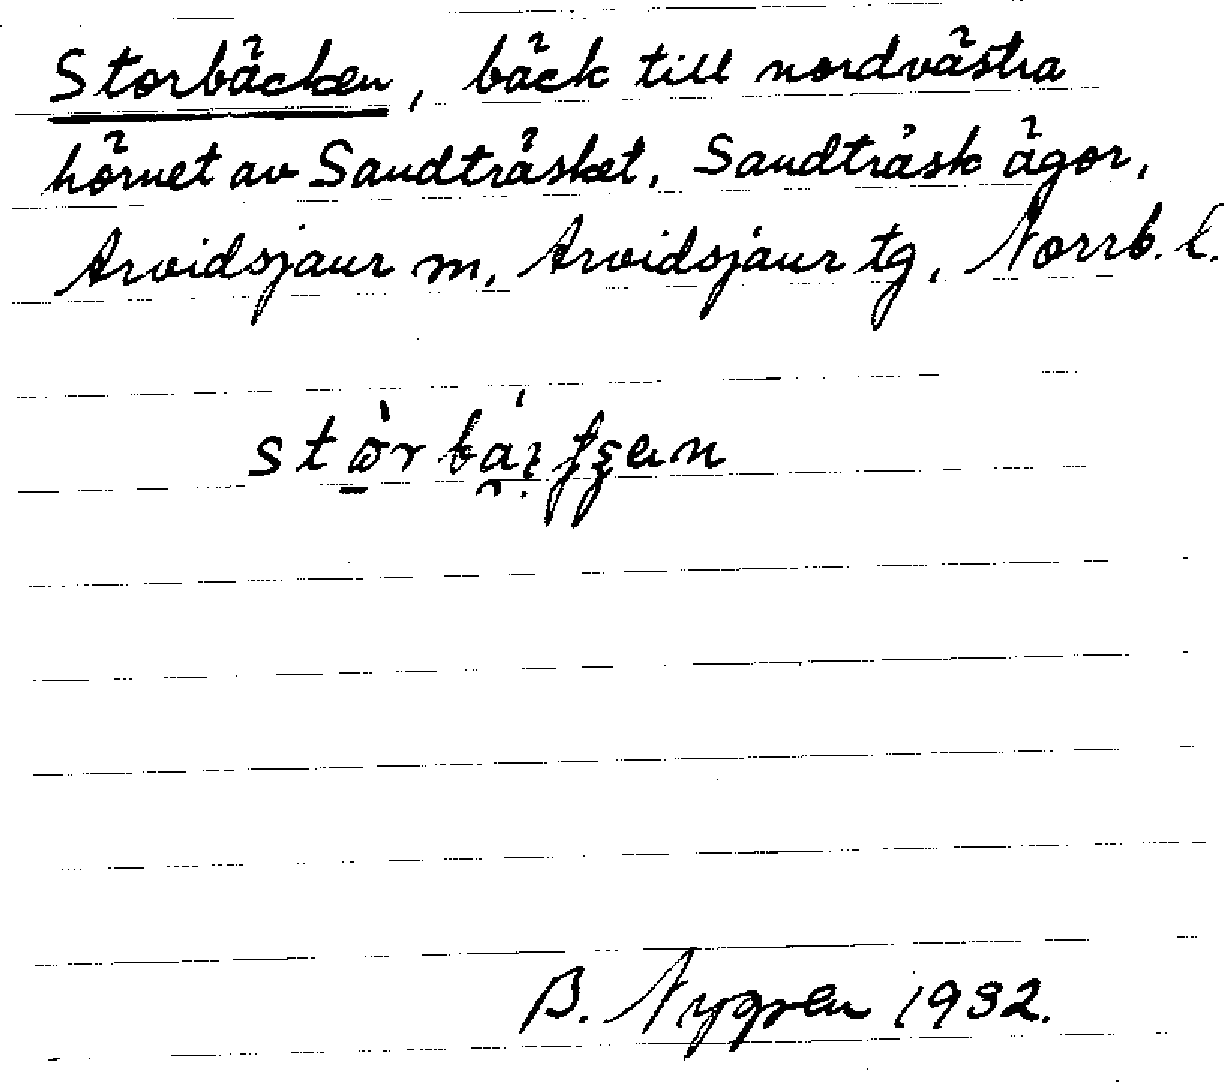 Storbäcken, bäck till nordvästra
hörnet av Sandträsket, Sandträsk ägor,
Arvidsjaur sn, Arvidsjaur tg, Norrb. l.
B. Nygren 1932.